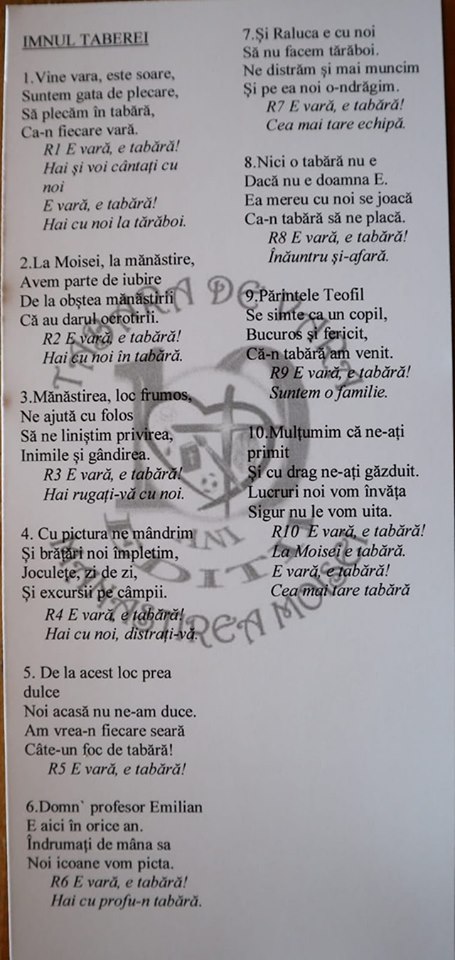 IMNUL TABEREI
1.Vine vara, este soare,
Suntem gata de plecare,
Să plecăm în tabără,
Ca-n fiecare vară.
R1 E vară, e tabără!
Hai şi voi cântaţi cu
noi
E vară, e tabără!
Hai cu noi la tărăboi.
2.La Moisei, la mănăstire,
Avem parte de iubire
De la obştea mănăstirii
Că au darul ocrotirii.
R2 E vară, e tabără!
Hai cu noi în tabără.
3.Mănăstirea, loc frumos,
Ne ajută cu folos
Să ne liniştim privirea,
Inimile şi gândirea.
R3 E vară, e tabără!
Hai rugaţi-vă cu noi.
4. Cu pictura ne mândrim
Şi brăţări noi împletim,
Joculeţe, zi de zi,
Şi excursii pe câmpii.
R4 E vară, e tabără!
Hai cu noi, distraţi-vă.
5. De la acest loc prea
dulce
Noi acasă nu ne-am duce.
Am vrea-n fiecare seară
Câte-un foc de tabără!
R5 E vară, e tabără!
6.Domn` profesor Emilian
E aici în orice an.
Îndrumaţi de mâna sa
Noi icoane vom picta.
R6 E vară, e tabără!
Hai cu profu-n tabără.
7.Şi Raluca e cu noi
Să nu facem tărăboi.
Ne distrăm şi mai muncim
Şi pe ea noi o-ndrăgim.
R7 E vară, e tabără!
Cea mai tare echipă.
8.Nici o tabără nu e
Dacă nu e doamna E.
Ea mereu cu noi se joacă
Ca-n tabără să ne placă.
R8 E vară, e tabără!
Înăuntru şi-afară.
9.Părintele Teofil
Se simte ca un copil,
Bucuros şi fericit,
Că-n tabără am venit.
R9 E vară, e tabără!
Suntem o familie.
10.Mulţumim că ne-aţi
primit
Şi cu drag ne-aţi găzduit.
Lucruri noi vom învăţa
Sigur nu le vom uita.
R10 E vară, e tabără!
La Moisei e tabără.
E vară, e tabără!
Cea mai tare tabără
TABĂRA DE
10
ANI
EDITIA
MĂNĂSTIREA MOISEI